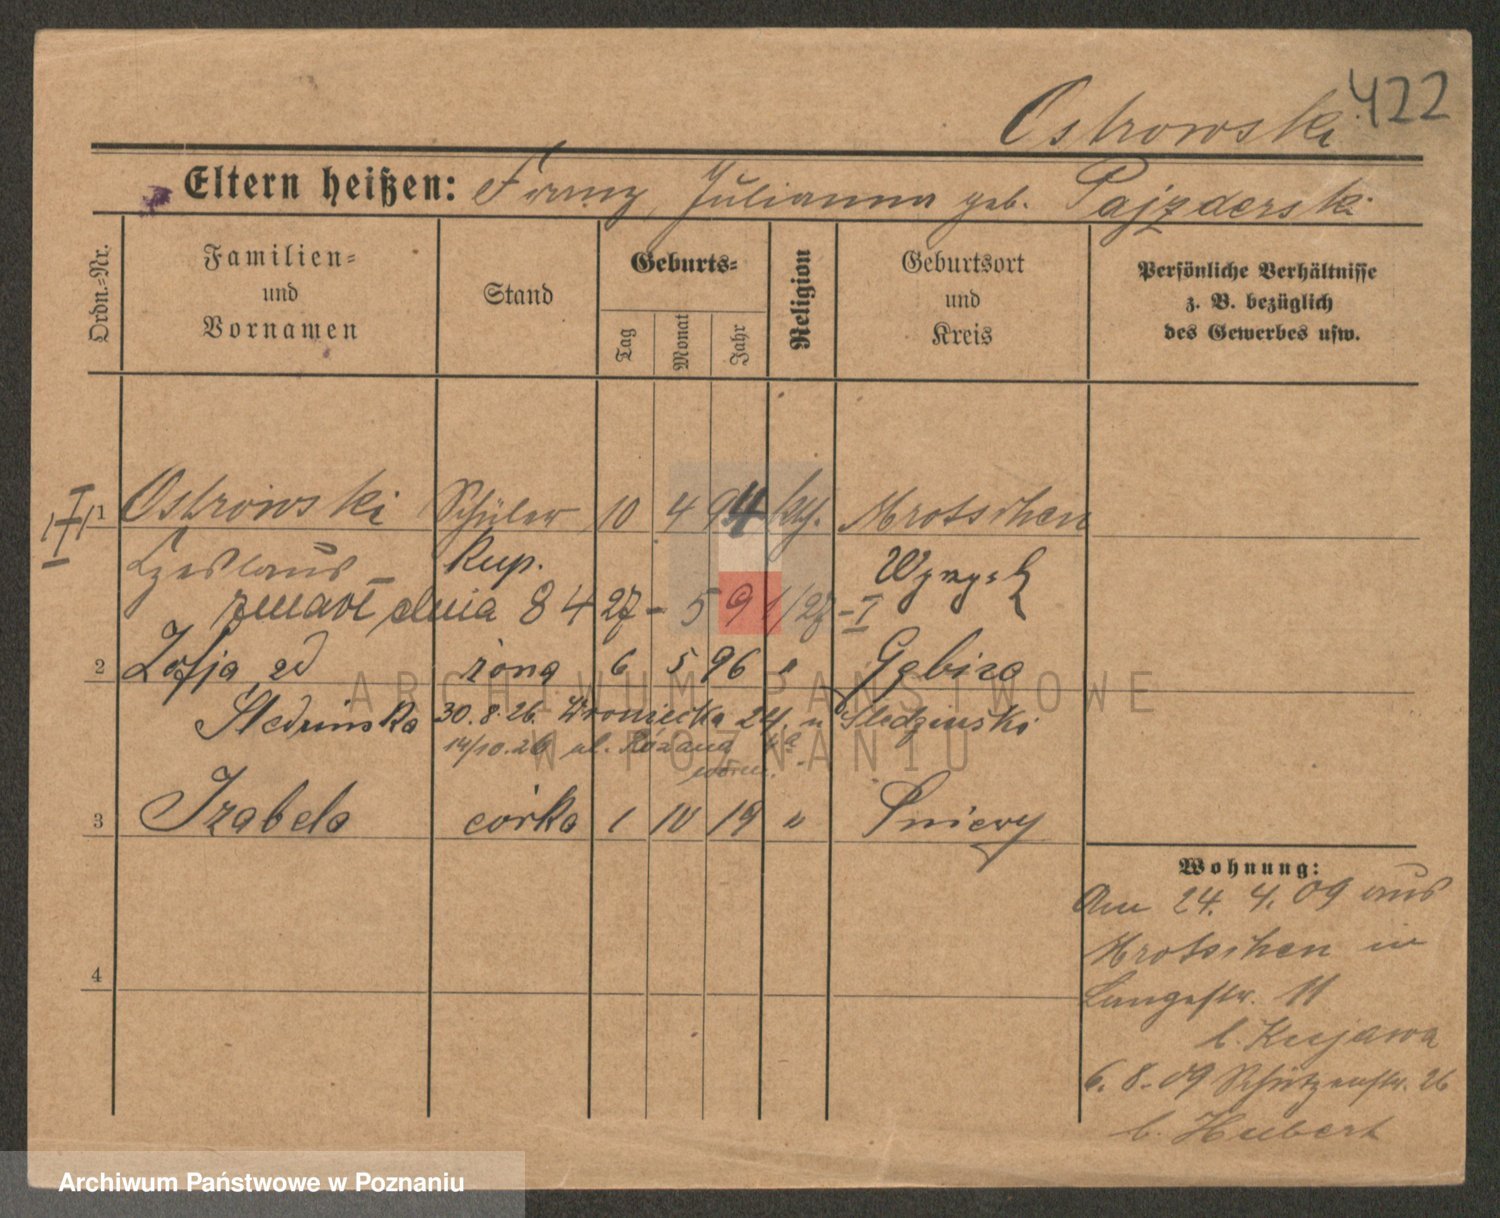 Ostrowski 422
Eltern heißen: Franz, Julianna geb. Pajzderski
Ordn.-Nr.
Familien-
und
Vornamen
Stand
Geburts-
Tag
Monat
Jahr
Religion
Geburtsort
und
Kreis
Persönliche Verhältnisse
z. B. bezüglich
des Gewerbes usw.
1 Ostrowski Schüler 10 4 94 kth. Mrotschen
Czeslaus kup.
zmarł dnia 8 4 27 - 591/27 - I
2 Zofja zd żona 6 5 96 " Gębice
Śledzinska 30.8.26. Wroniecka 24. u Śledzinski
14/10.26 ul. Różana
3 Izabela córka 1 10 19 "
4
Wohnung:
Am 24. 4. 09 aus
Mrotschen in
Langestr. 11
b. Kujawa
6. 8. 09 Schützenstr. 26
b. Hubert
ARCHIWUM PAŃSTWOWE
W POZNANIU
Archiwum Państwowe w Poznaniu